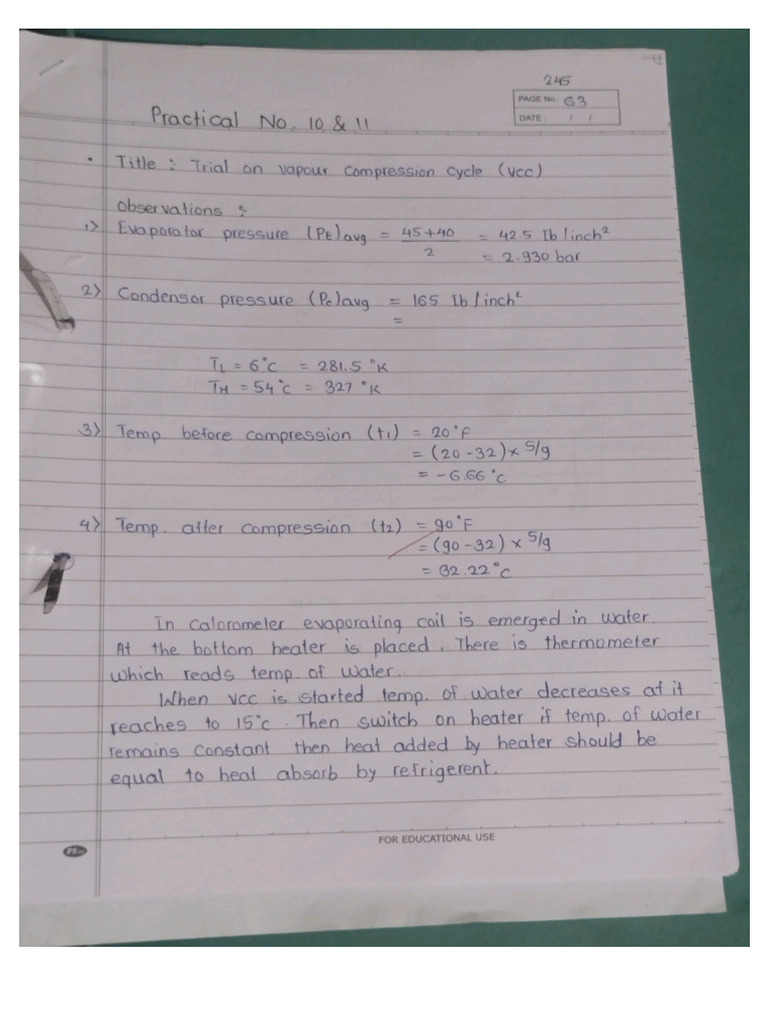 245
PAGE No.: 63
DATE: / /
Practical No. 10 & 11
• Title : Trial on vapour compression cycle (vcc)
Observations :
1) Evaporator pressure (PE)avg = 45+40/2 = 42.5 Ib/inch²
= 2.930 bar
2) Condensor pressure (Pc)avg = 165 Ib/inch²
=
TL = 6°C = 281.5 °K
TH = 54°C = 327 °K
3) Temp. before compression (t1) = 20°F
= (20-32)× 5/9
= -6.66 °C
4) Temp. after compression (t2) = 90°F
= (90-32) × 5/9
= 32.22°C
In calorometer evaporating coil is emerged in water.
At the bottom heater is placed. There is thermometer
which reads temp. of water.
When vcc is started temp. of water decreases at it
reaches to 15°C. Then switch on heater if temp. of water
remains constant then heat added by heater should be
equal to heat absorb by refrigerent.
FOR EDUCATIONAL USE